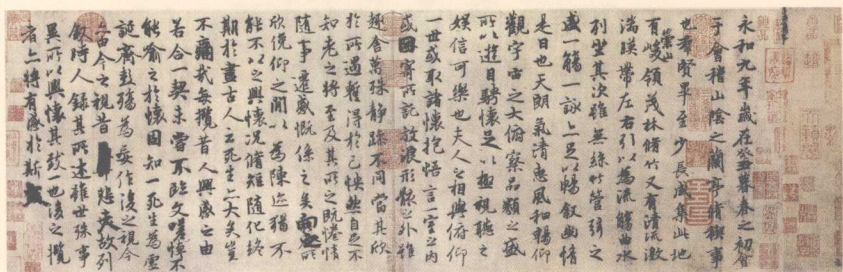 永和九年歲在癸丑暮春之初會
于會稽山陰之蘭亭脩禊事
也群賢畢至少長咸集此地
有崇山峻領茂林脩竹又有清流激
湍暎帶左右引以為流觴曲水
列坐其次雖無絲竹管弦之
盛一觴一詠亦足以暢叙幽情
是日也天朗氣清惠風和暢仰
觀宇宙之大俯察品類之盛
所以遊目騁懷足以極視聽之
娛信可樂也夫人之相與俯仰
一世或取諸懷抱悟言一室之內
或因寄所託放浪形骸之外雖
趣舍萬殊靜躁不同當其欣
於所遇暫得於己怏然自足不
知老之將至及其所之既惓情
隨事遷感慨係之矣向之所
欣俛仰之閒以為陳迹猶不
能不以之興懷況脩短隨化終
期於盡古人云死生亦大矣豈
不痛哉每攬昔人興感之由
若合一契未嘗不臨文嗟悼不
能喻之於懷固知一死生為虛
誕齊彭殤為妄作後之視今
亦由今之視昔悲夫故列
叙時人錄其所述雖世殊事
異所以興懷其致一也後之攬
者亦將有感於斯文